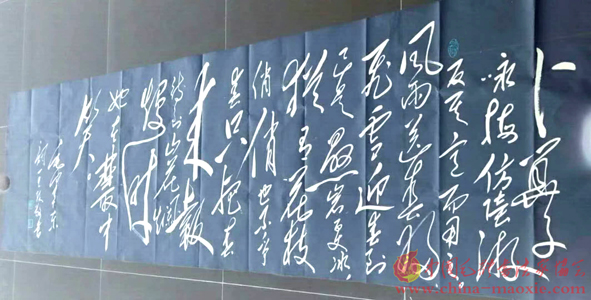 卜算子
咏梅仿陆游
反其意而用之
风雨送春归
飞雪迎春到
已是悬岩百丈冰
犹有花枝
俏俏也不争
春只把春
来報
待到山花烂
熳時
她在叢中
笑
毛泽东
www.china-maoxie.com